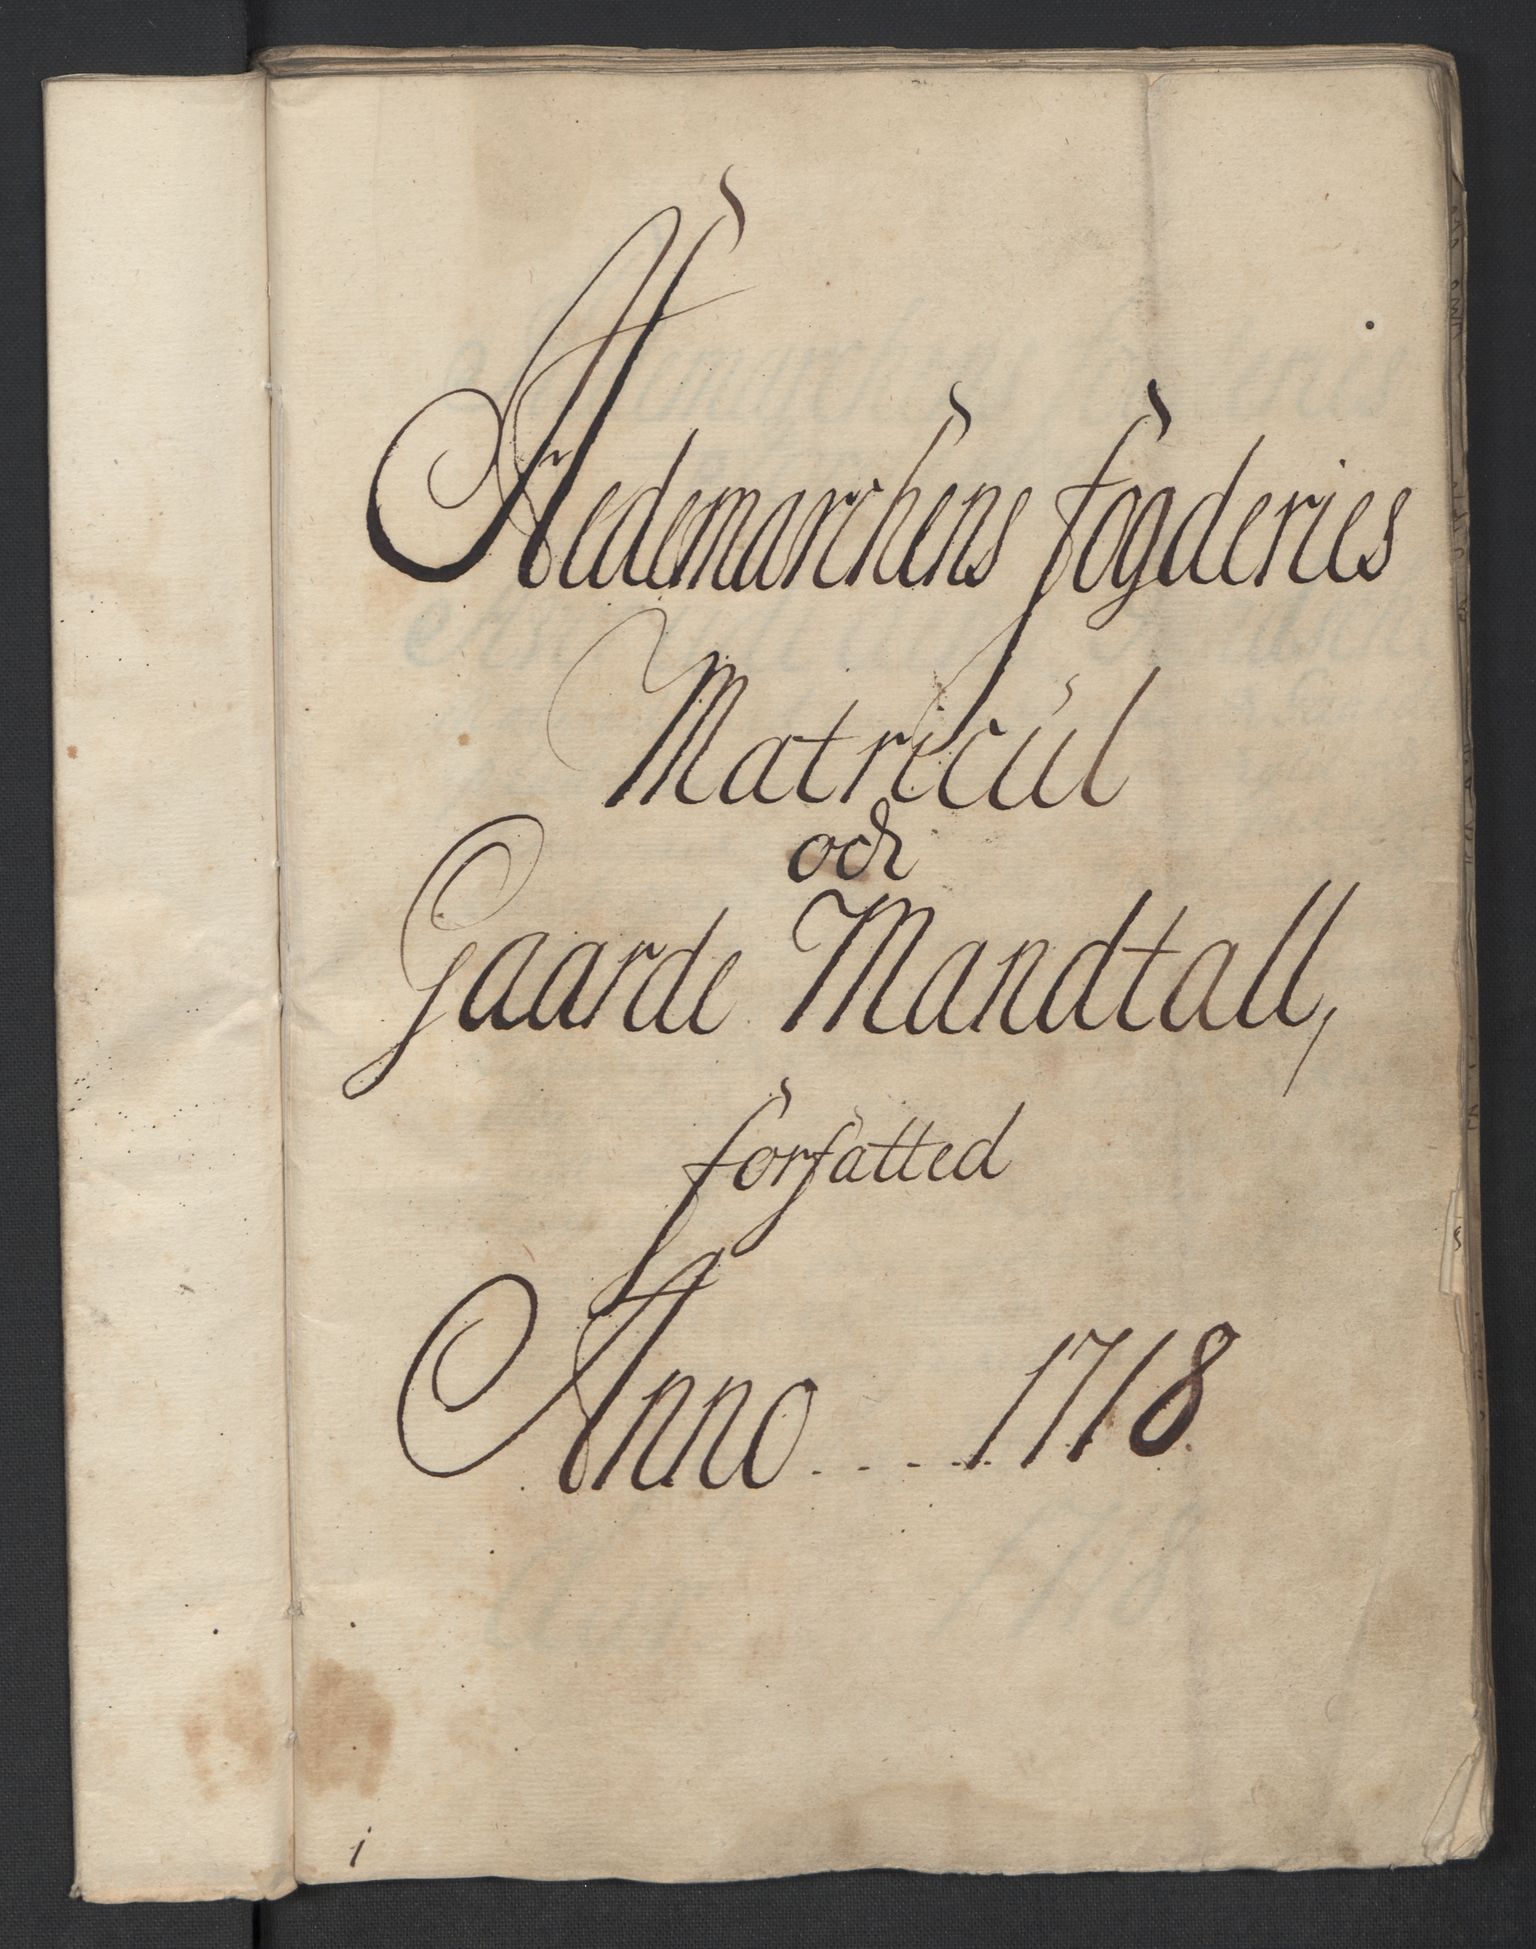 Hedemarchens fogderies
Matricül
och
Gaarde Mandtall,
forfatted
Anno .... 1718
i